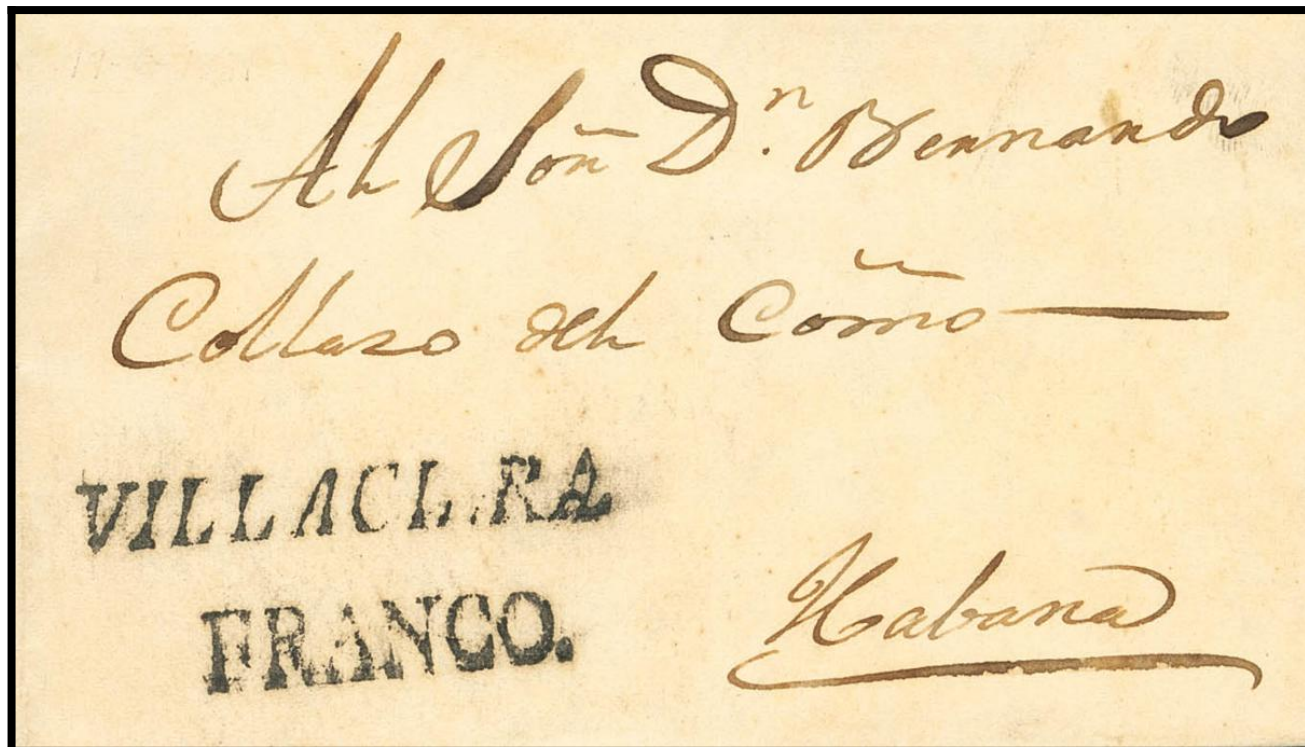 Al Señ D.n Bernardo
Collazo del Com̃o
VILLACL.RA
FRANCO.
Habana